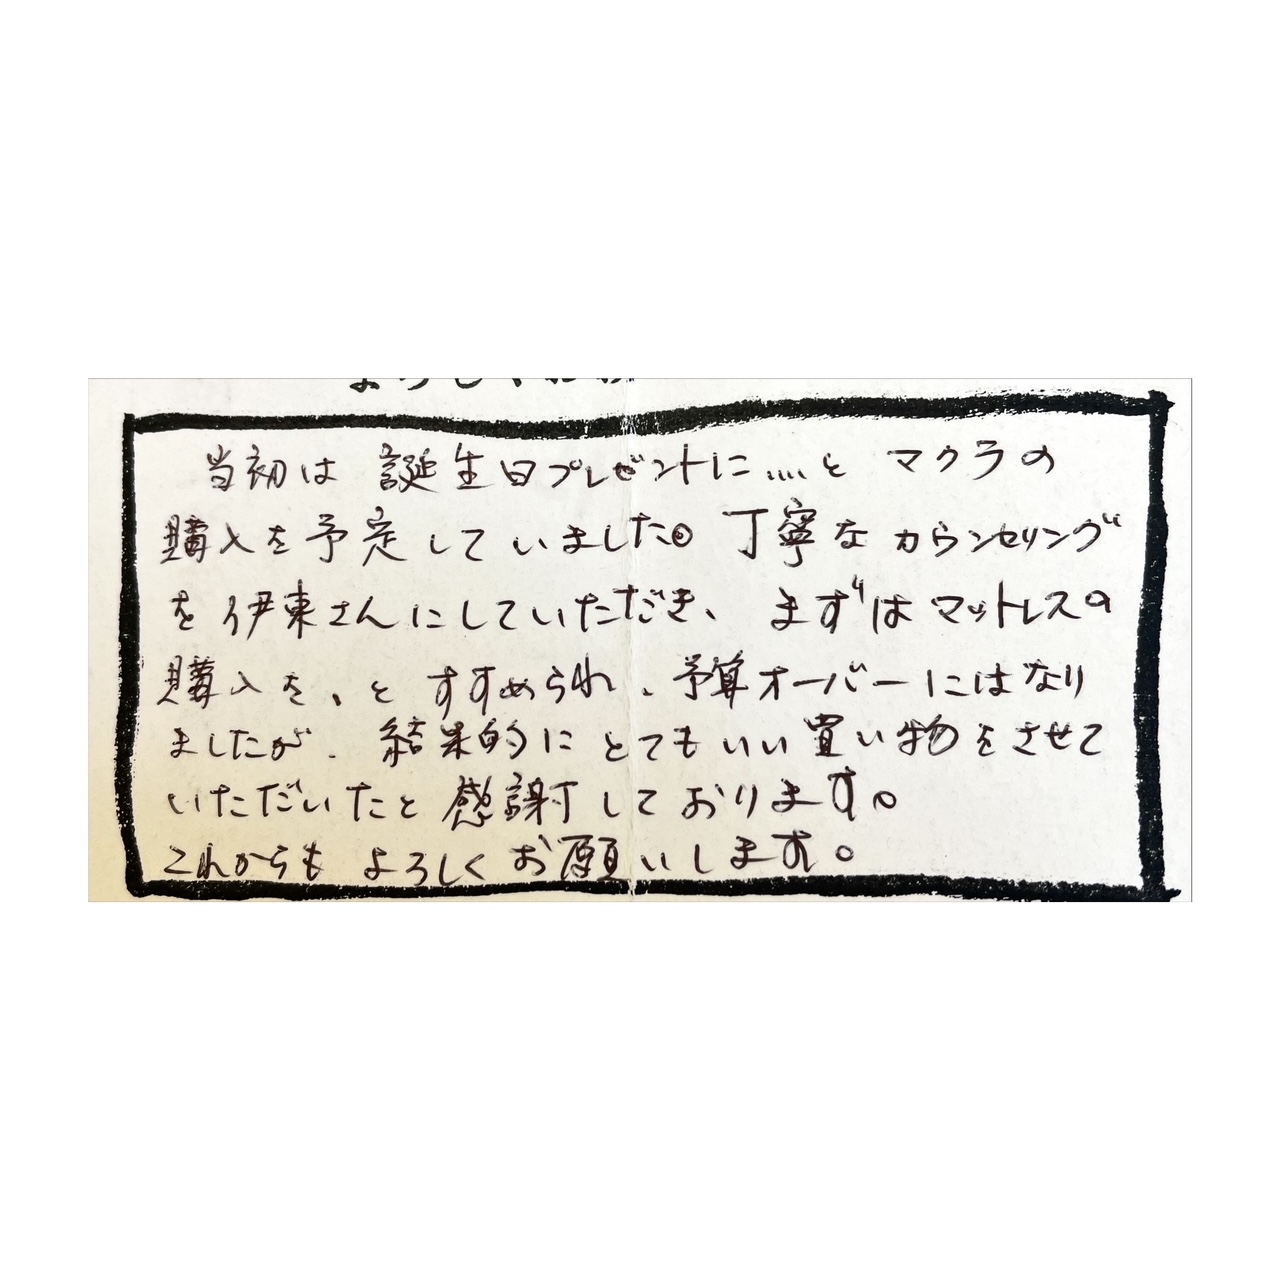 当初は 誕生日プレゼントに....と マクラの
購入を予定していました。丁寧なカウンセリング
を伊東さんにしていただき、まずはマットレスの
購入を、とすすめられ、予算オーバーにはなり
ましたが、結果的にとてもいい買い物をさせて
いただいたと感謝しております。
これからもよろしくお願いします。